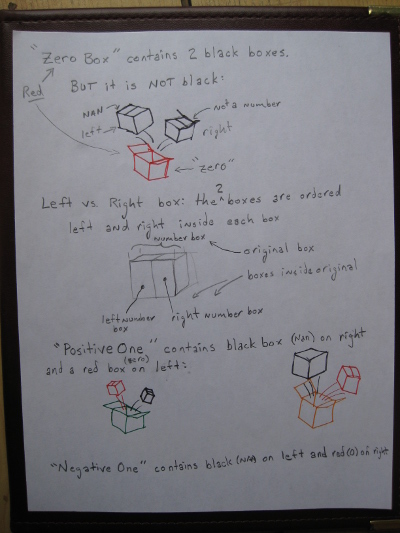 "Zero Box" contains 2 black boxes.
Red
BUT it is NOT black:
NAN
Not a number
left
right
"zero"
Left vs. Right box: the 2 boxes are ordered
left and right inside each box
number box
original box
boxes inside original
left number
box
right number box
"Positive One" contains black box (NaN) on right
and a red box (zero) on left:
"Negative One" contains black (NAN) on left and red (0) on right